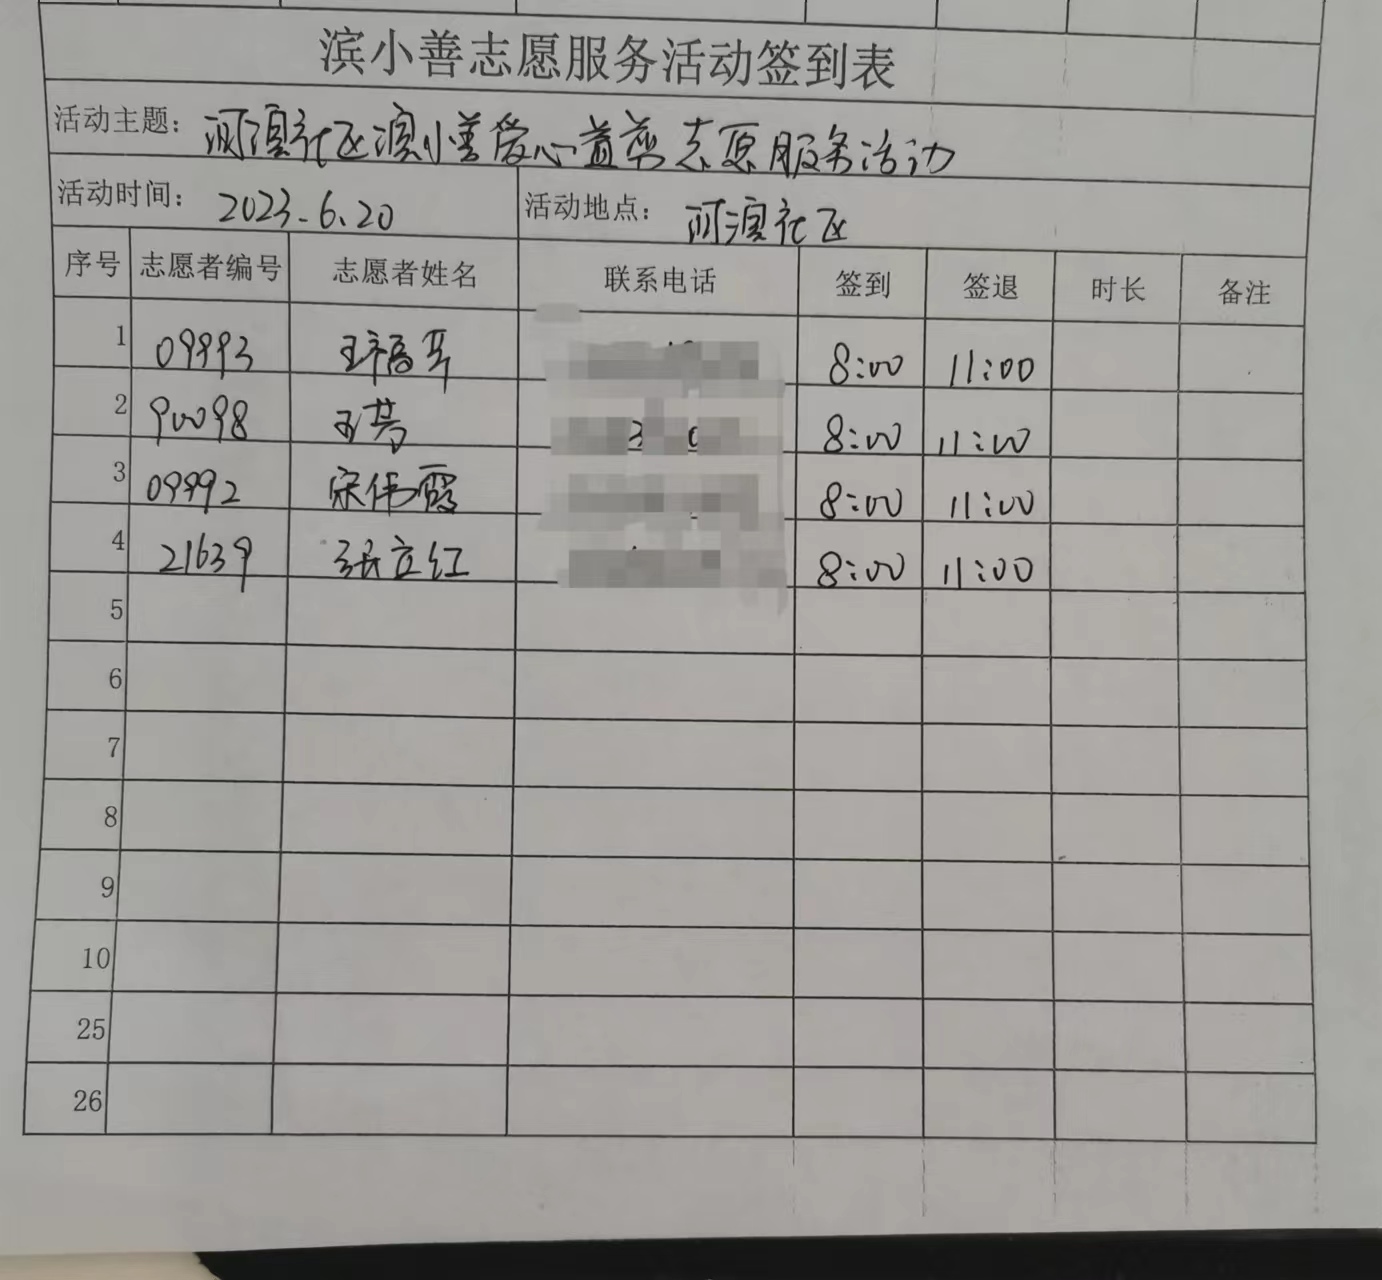 滨小善志愿服务活动签到表
活动主题: 河滨社区滨小善爱心益剪志愿服务活动
活动时间: 2023.6.20 活动地点: 河滨社区
序号 志愿者编号 志愿者姓名 联系电话 签到 签退 时长 备注
1 09993 8:00 11:00
2 90098 王芬 8:00 11:00
3 09992 宋伟霞 8:00 11:00
4 21639 张立红 8:00 11:00
5
6
7
8
9
10
25
26